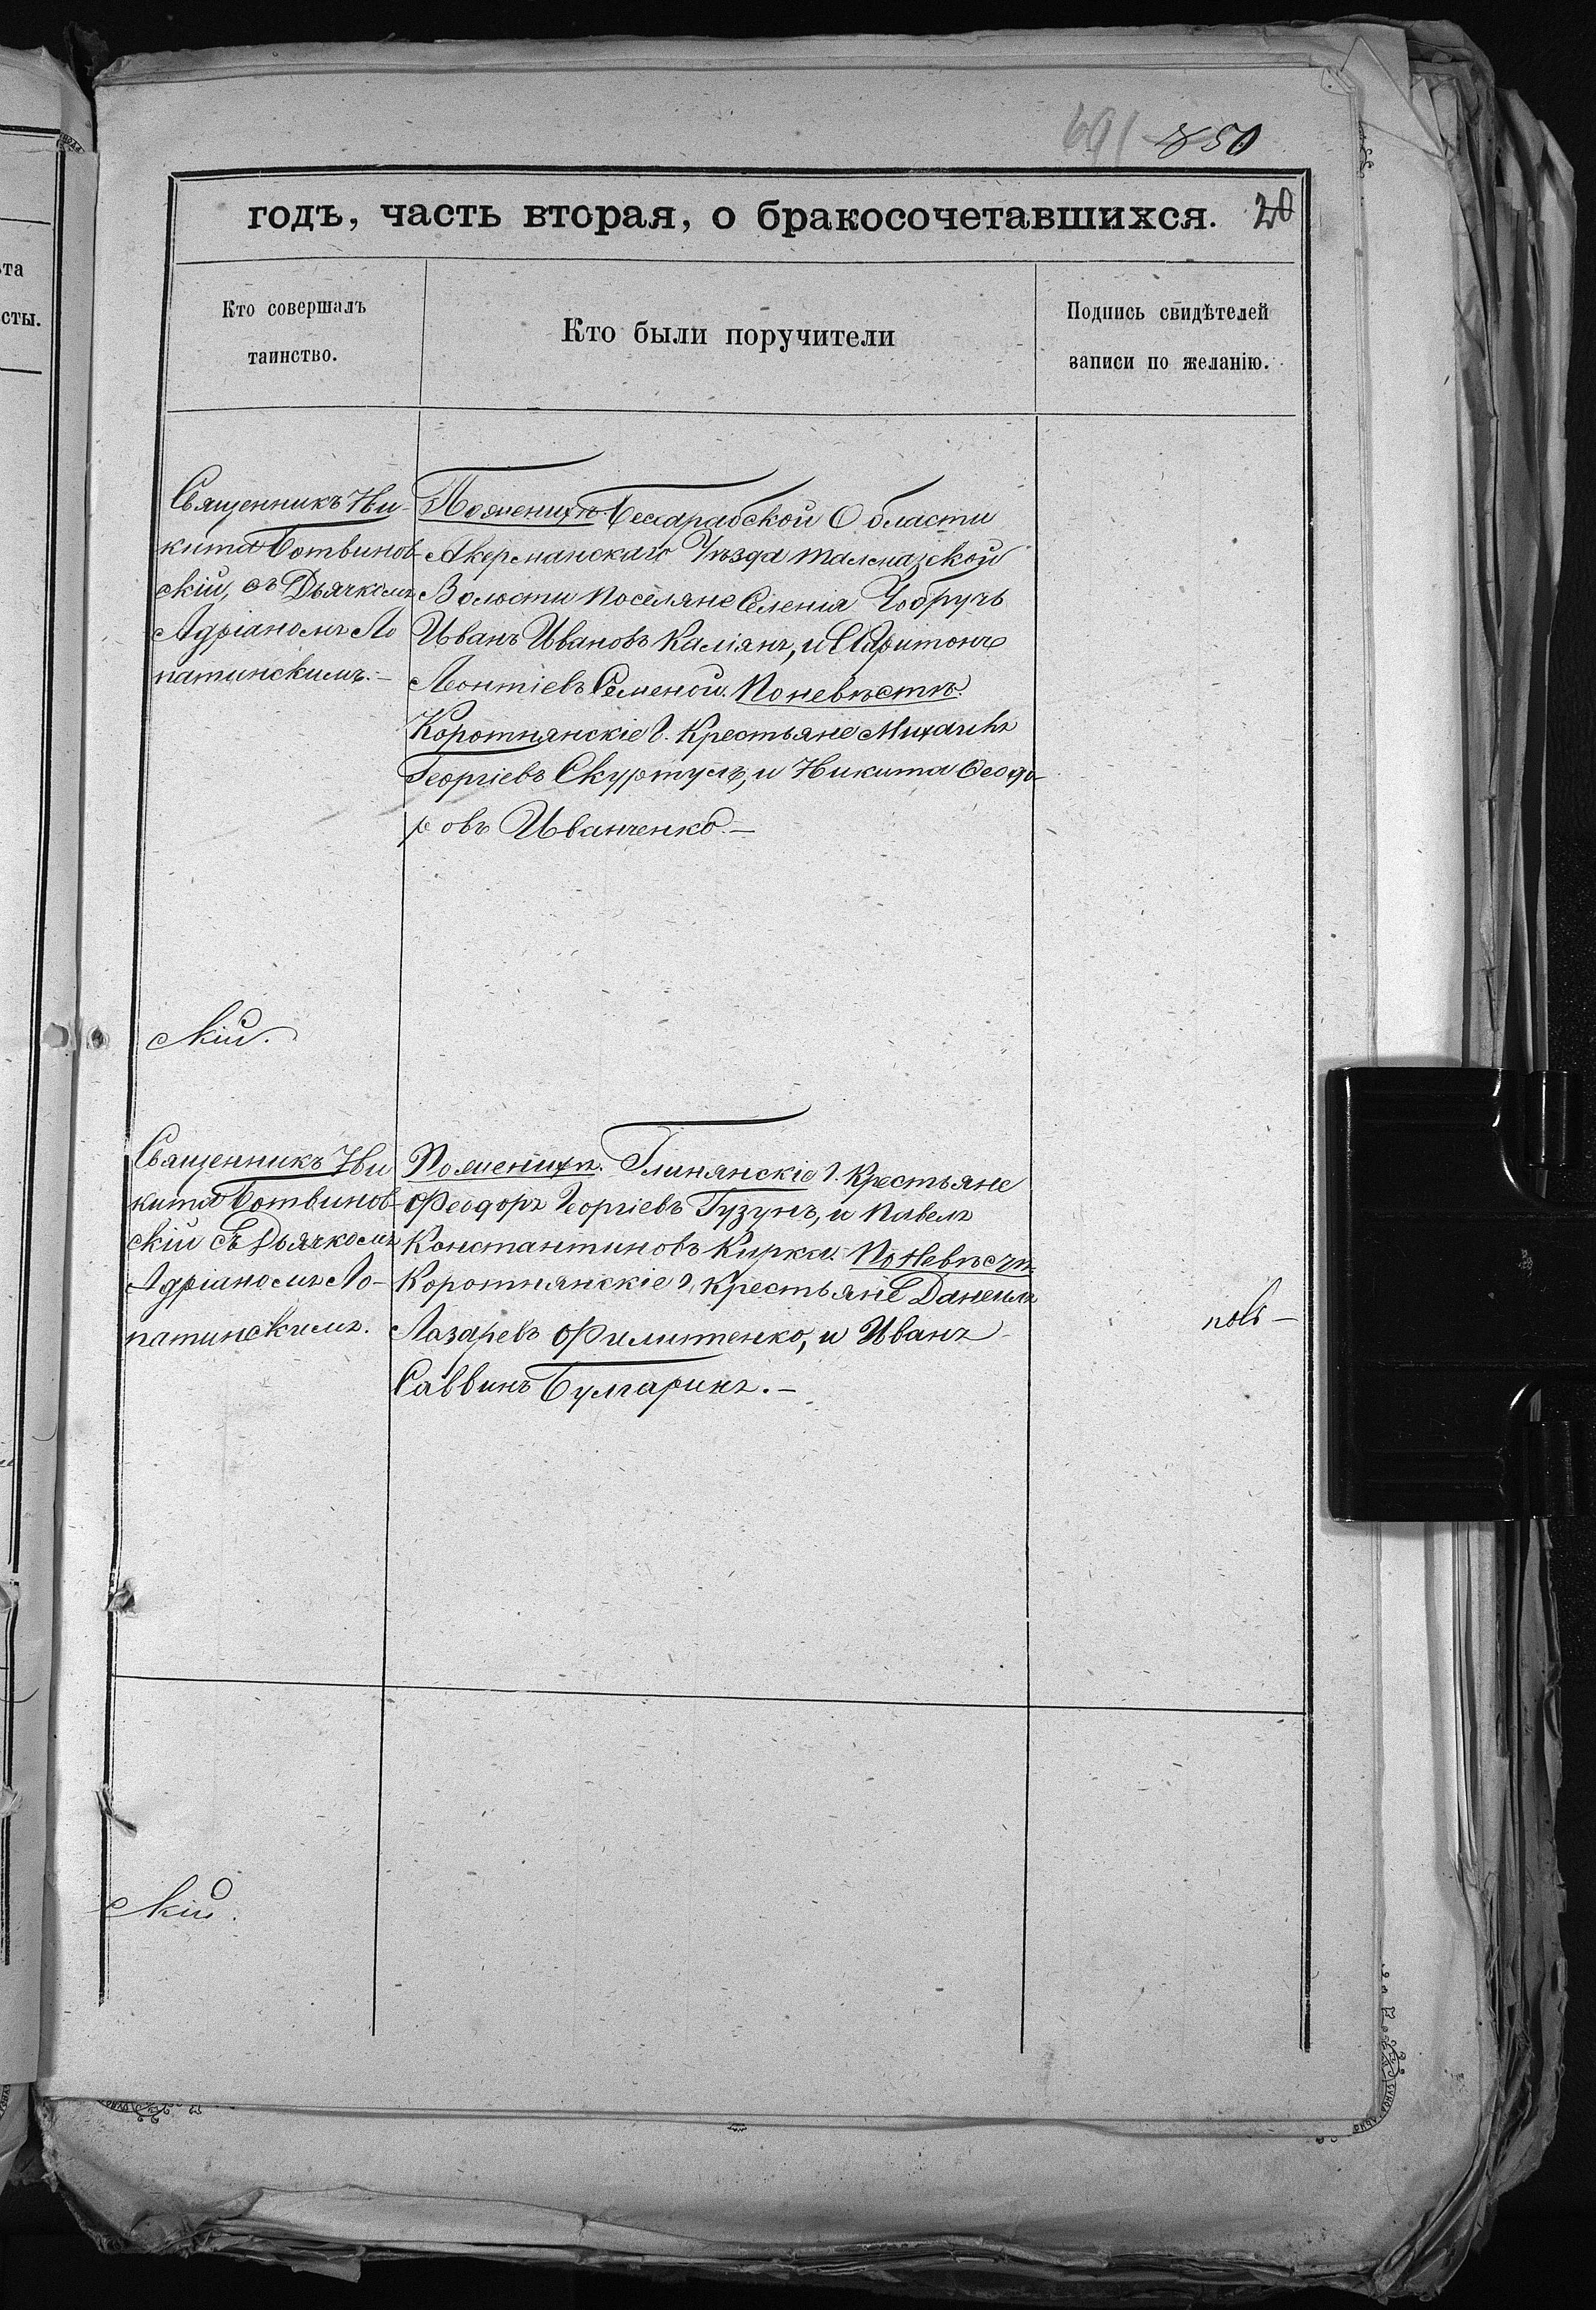 691 850
годъ, часть вторая, о бракосочетавшихся. 20
Кто совершалъ
таинство.
Кто были поручители
Подпись свидѣтелей
записи по желанію.
Священникъ Ни-
кита Ботвинов-
скій, съ Дьячкомъ
Адріаномъ Ло
патинскимъ.–
По женихѣ. Бессарабской Области
Акерманскаго Уѣзда Талмазской
Волости поселяне Селенія Чобручъ
Иванъ Ивановъ Каліянъ, и Харитонъ
Леонтіевъ Семеной. По невѣстѣ.
Коротнянскіе Г. Крестьяне Михаилъ
Георгіевъ Скуртулъ, и Никита Ѳеодо-
ровъ Иванченко.–
скій.
Священникъ Ни
кита Ботвинов-
скій съ Дьячкомъ
Адріаномъ Ло-
патинскимъ.
По женихѣ. Глинянскіе Г. Крестьяне
Феодоръ Георгіевъ Гузунъ, и Павелъ
Константиновъ Кирка. По невѣстѣ.
Коротнянскіе Г. Крестьяне Данеилъ
Лазаревъ Филипенко, и Иванъ
Саввинъ Булгаринъ.–
повъ–
скій.
та
сты.